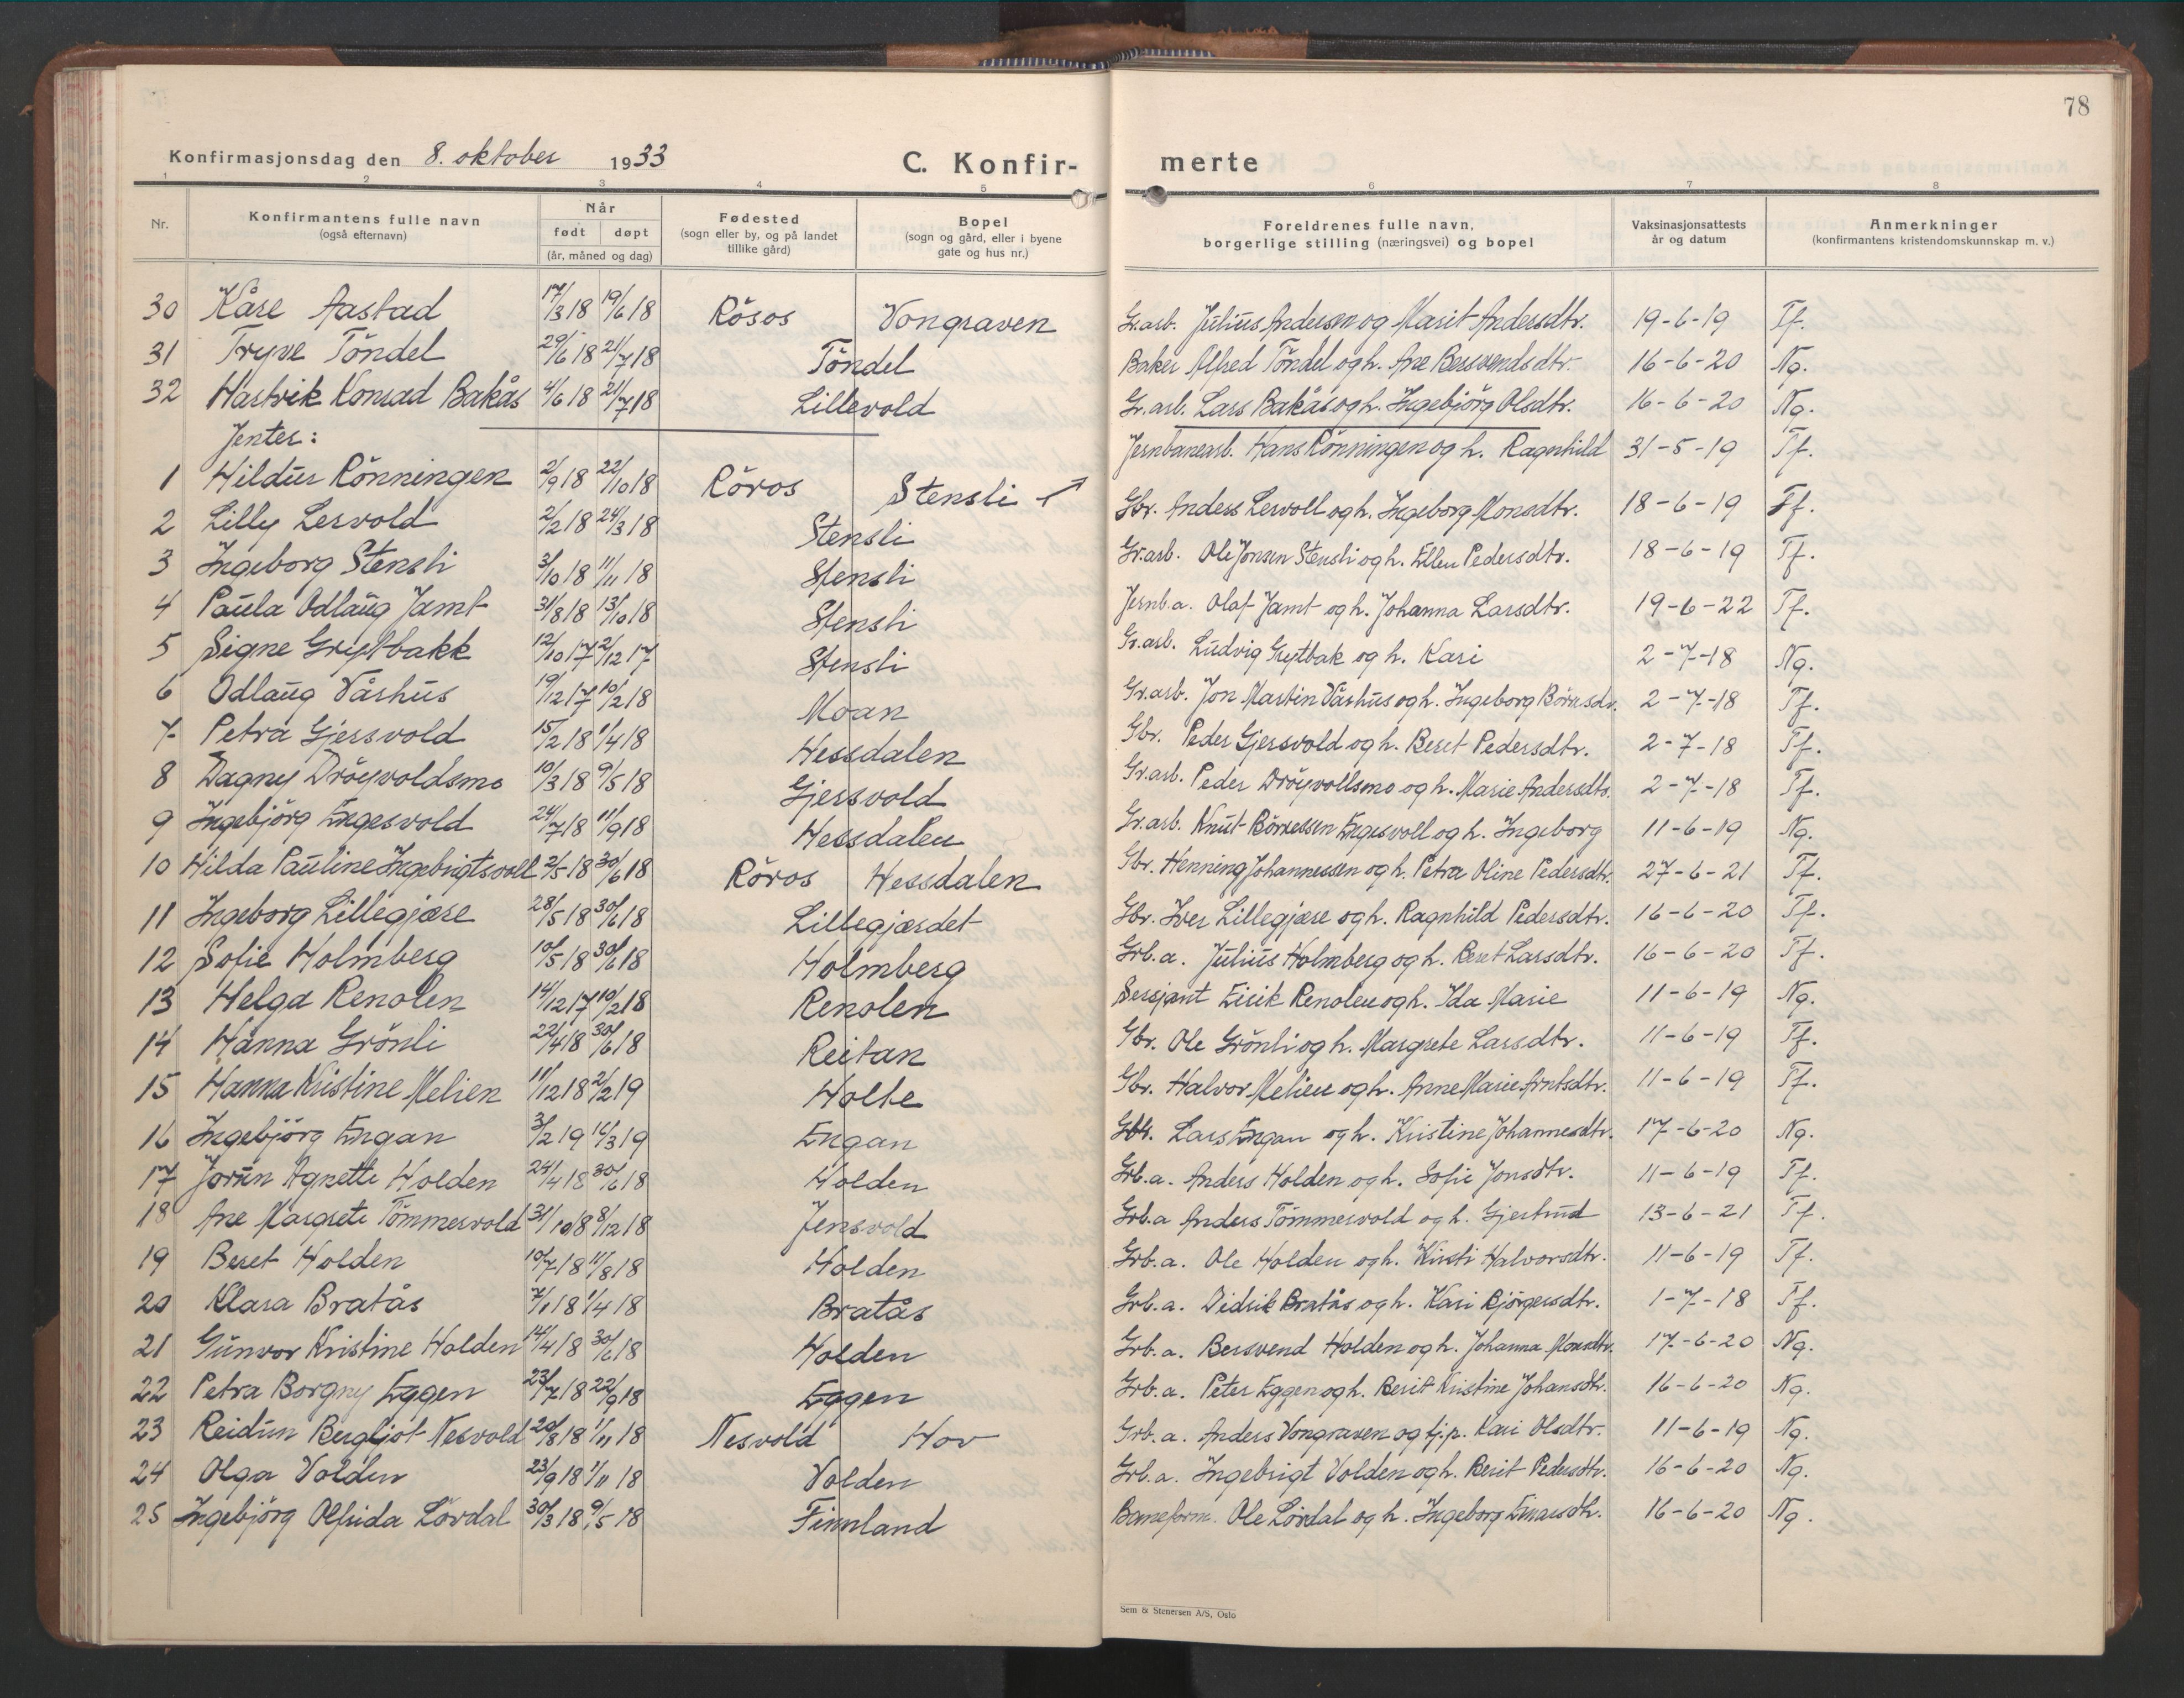 78
Konfirmasjonsdag den 8. oktober 1933 C. Konfir- merte
1 2 3 4 5 6 7 8
Nr. Konfirmantens fulle navn (også efternavn) Når født døpt (år, måned og dag) Fødested (sogn eller by, og på landet tillike gård) Bopel (sogn og gård, eller i byene gate og hus nr.) Foreldrenes fulle navn, borgerlige stilling (næringsvei) og bopel Vaksinasjonsattests år og datum Anmerkninger (konfirmantens kristendomskunnskap m. v.)
30 Kåre Aastad 17/3 18 19/6 18 Röros Vongraven Gr.arb. Julius Andersen og Marit Andersdtr. 19-6-19 Tf.
31 Tryve Töndel 29/6 18 21/7 18 Töndel Baker Alfred Töndel og h. Ane Bersvendsdtr. 16-6-20 Ng.
32 Hartvik Konrad Bakås 4/6 18 21/7 18 Lillevold Gr.arb. Lars Bakås og h. Ingebjörg Olsdtr. 16-6-20 Ng.
Jenter:
1 Hildur Rönningen 2/9 18 22/10 18 Röros Stensli Jernbanearb. Hans Rönningen og h. Ragnhild 31-5-19 Tf.
2 Lilly Lervold 2/2 18 24/3 18 Stensli Gbr. Anders Lervoll og h. Ingeborg Monsdtr. 18-6-19 Tf.
3 Ingeborg Stensli 3/10 18 11/11 18 Stensli Gr.arb. Ole Jonsen Stensli og h. Ellen Pedersdtr. 18-6-19 Tf.
4 Paula Odlaug Jamt 31/8 18 13/10 18 Stensli Jernb.a. Olaf Jamt og h. Johanna Larsdtr. 19-6-22 Tf.
5 Signe Grytbakk 12/10 17 2/12 17 Stensli Gr.arb. Ludvig Grytbak og h. Kari 2-7-18 Ng.
6 Odlaug Vårhus 19/12 17 10/2 18 Moan Gr.arb. Jon Martin Vårhus og h. Ingeborg 2-7-18 Tf.
7 Petra Gjersvold 15/2 18 1/4 18 Hessdalen Gbr. Peder Gjersvold og h. Beret Pedersdtr. 2-7-18 Tf.
8 Dagny Dröyvoldsmo 10/3 18 9/5 18 Gjersvold Gr.arb. Peder Dröyvollsmo og h. Marie Andersdtr. 2-7-18 Tf.
9 Ingebjörg Engesvold 24/7 18 11/9 18 Hessdalen Gr.arb. Knut Börressen Engesvoll og h. Ingeborg 11-6-19 Ng.
10 Hilda Pauline Ingebrigtsvoll 2/5 18 30/6 18 Röros Hessdalen Gbr. Henning Johannessen og h. Petra Oline Pedersdtr. 27-6-21 Tf.
11 Ingeborg Lillegjære 28/5 18 30/6 18 Lillegjærdet Gbr. Iver Lillegjære og h. Ragnhild Pedersdtr. 16-6-20 Tf.
12 Sofie Holmberg 10/5 18 30/6 18 Holmberg Grb.a. Julius Holmberg og h. Beret Larsdtr. 16-6-20 Tf.
13 Helga Renolen 14/12 17 10/2 18 Renolen Sersjant Eirik Renolen og h. Ida Marie 11-6-19 Ng.
14 Hanna Grönli 22/4 18 30/6 18 Reitan Gbr. Ole Grönli og h. Margrete Larsdtr. 11-6-19 Tf.
15 Hanna Kristine Melien 11/12 18 2/2 19 Holte Gbr. Halvor Melien og h. Anne Marie Arntsdtr. 11-6-19 Tf.
16 Ingebjörg Engan 3/2 19 16/3 19 Engan Gbr. Lars Engan og h. Kristine Johannesdtr. 17-6-20 Ng.
17 Jorun Agnette Holden 24/4 18 30/6 18 Holden Grb.a. Anders Holden og h. Sofie Jonsdtr. 11-6-19 Tf.
18 Ane Margrete Tömmervold 31/10 18 8/12 18 Jensvold Grb.a Anders Tömmervold og h. Gjertrud 13-6-21 Tf.
19 Beret Holden 10/7 18 11/8 18 Holden Grb.a. Ole Holden og h. Kirsti Halvorsdtr. 11-6-19 Tf.
20 Klara Bratås 7/1 18 1/4 18 Bratås Grb.a. Didrik Bratås og h. Kari Björgersdtr. 1-7-18 Tf.
21 Gunvor Kristine Holden 14/4 18 30/6 18 Holden Grb.a. Bersvend Holden og h. Johanna Monsdtr. 17-6-20 Ng.
22 Petra Borgny Eggen 23/7 18 22/9 18 Eggen Grb.a. Peter Eggen og h. Berit Kristine Johansdtr. 16-6-20 Ng.
23 Reidun Bergljot Nesvold 20/8 18 1/11 18 Nesvold Hov Grb.a. Anders Vongraven og fj.p. Kari Olsdtr. 11-6-19 Ng.
24 Olga Volden 23/9 18 1/11 18 Volden Grb.a. Ingebrigt Volden og h. Berit Pedersdtr. 16-6-20 Ng.
25 Ingebjörg Olfrida Lövdal 30/3 18 9/5 18 Finnland Baneform. Ole Lövdal og h. Ingeborg Einarsdtr. 16-6-20 Ng.
Sem & Stenersen A/S, Oslo